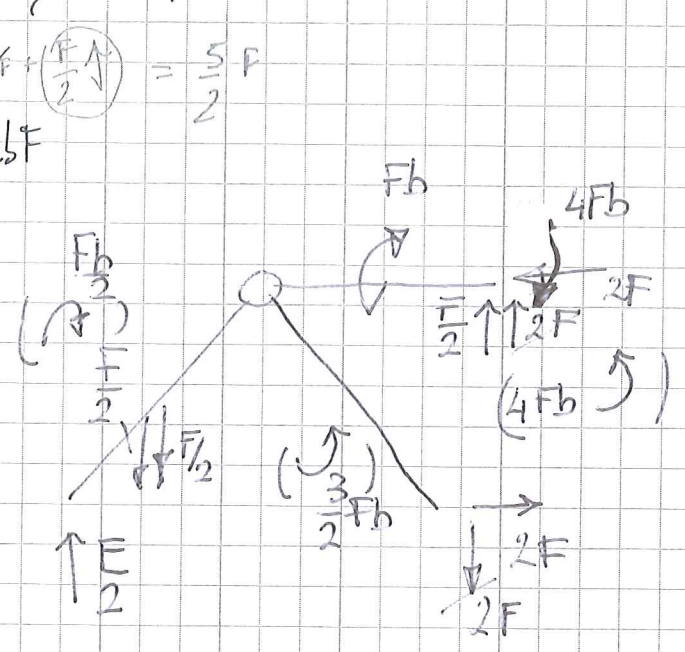 F + (F/2 ↑) = 5/2 F
.5F
Fb
4Fb
Fb/2
2F
( ↷ )
F/2 ↑ ↑ 2F
F/2
(4Fb ↺)
↓↓ F/2
( ↺ )
3/2 Fb
↑ F/2
→ 2F
↓ 2F